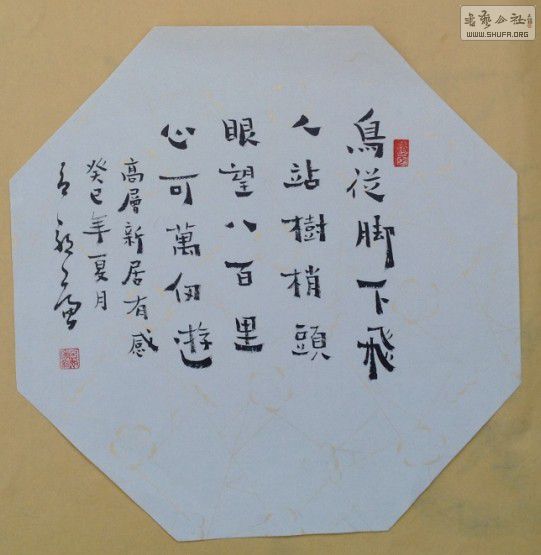 鳥從脚下飛
人站樹梢頭
眼望八百里
心可萬仞遊
高層新居有感
癸巳年夏月
書藝公社
WWW.SHUFA.ORG